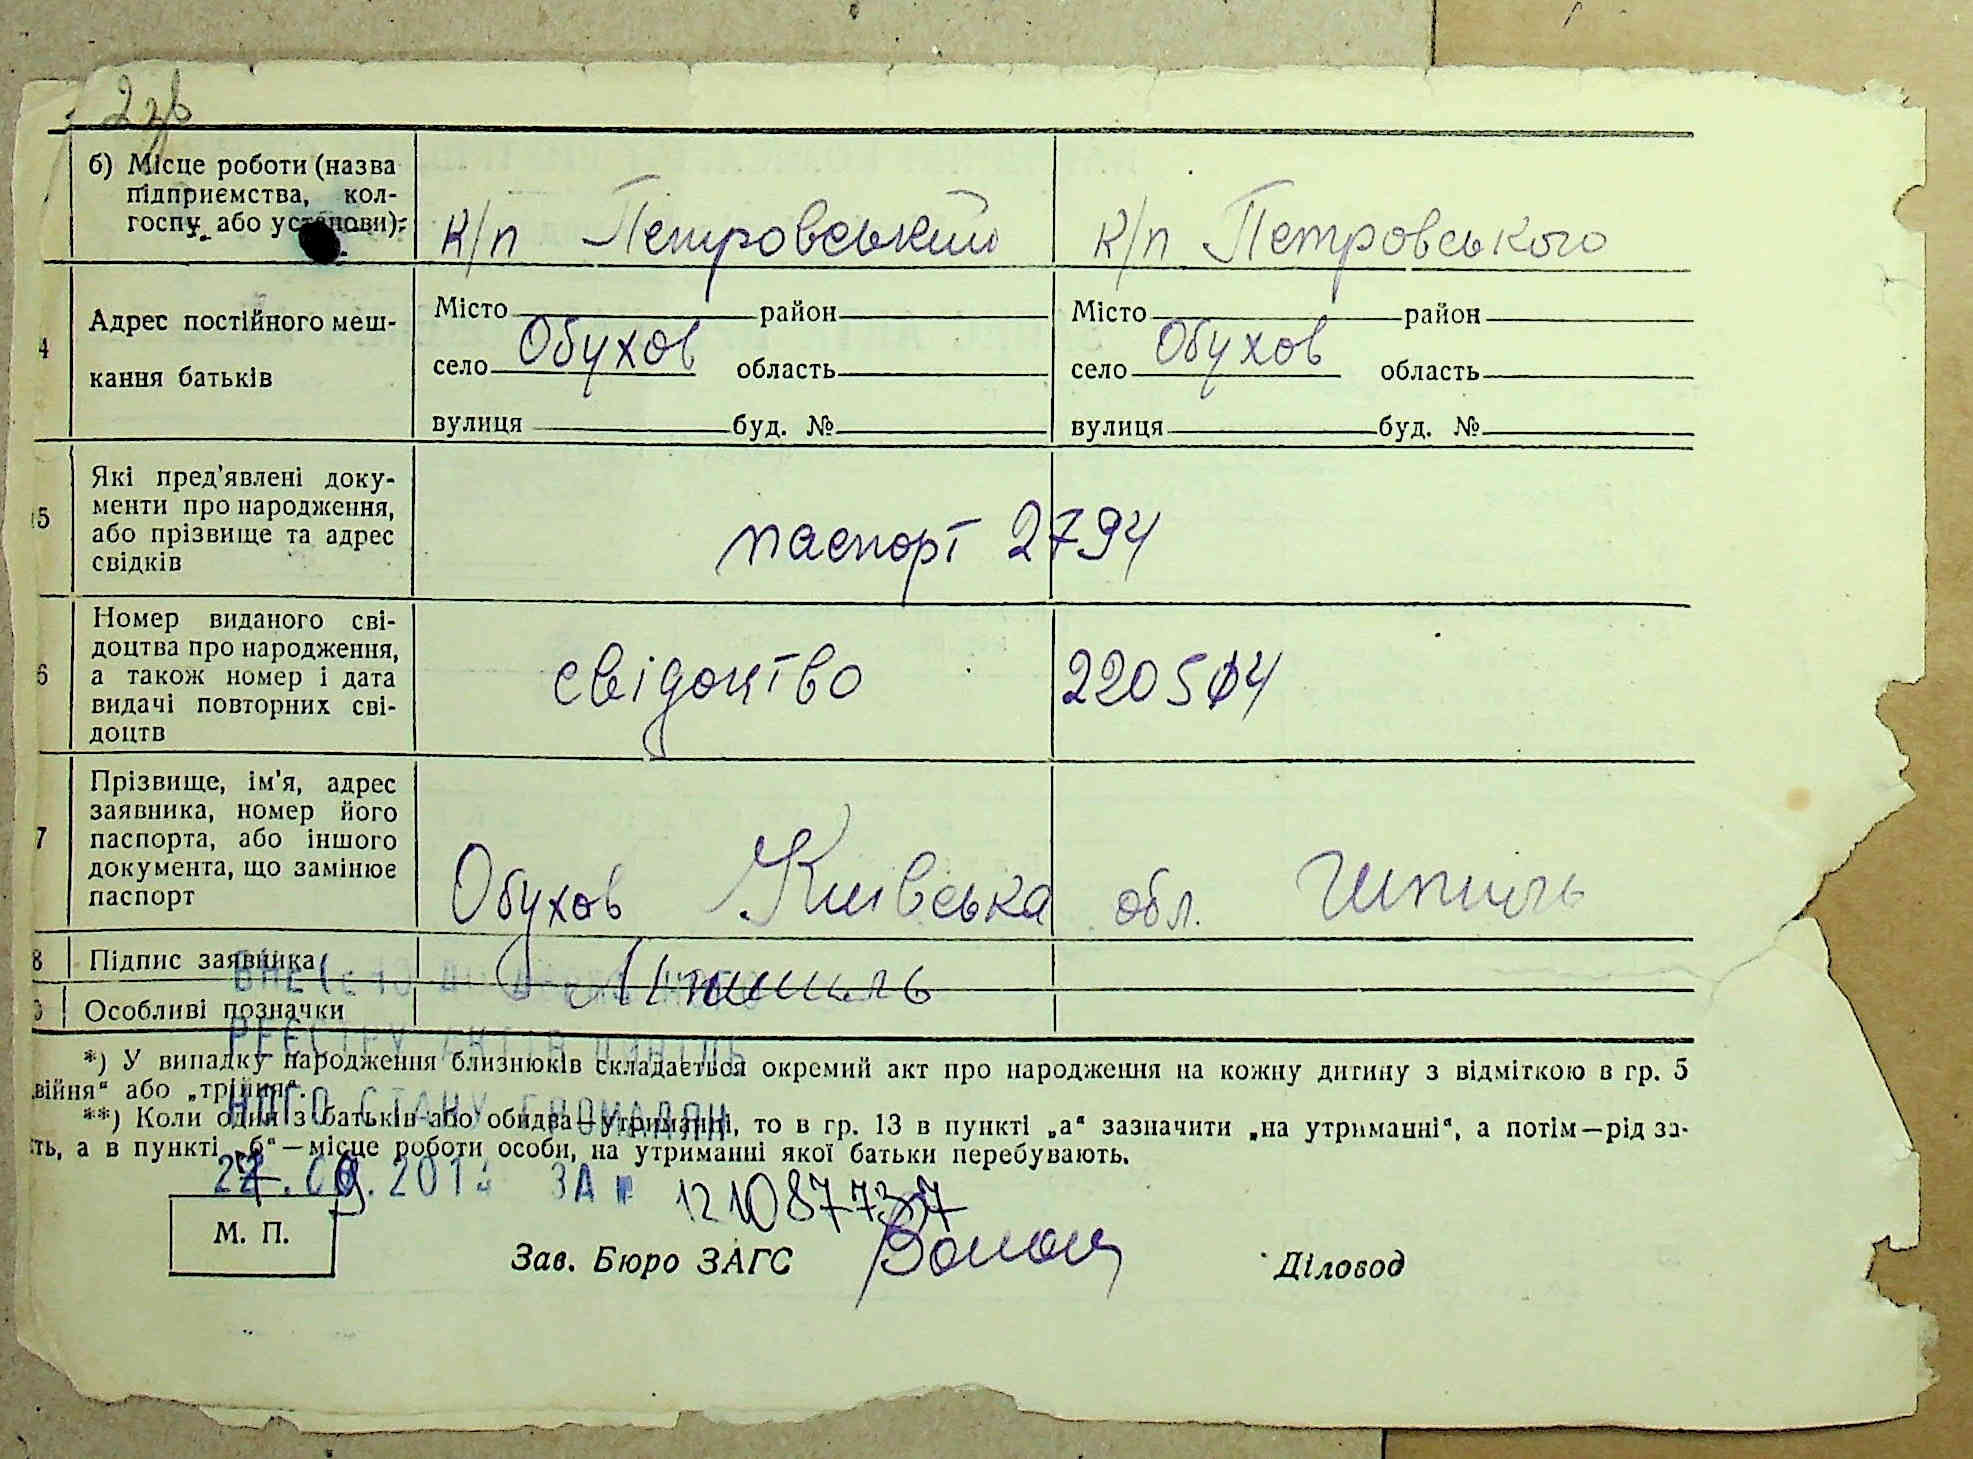 2зв
б) Місце роботи (назва
підприємства, кол-
госпу або установи):
к/п Петровський
к/п Петровського
4
Адрес постійного меш-
кання батьків
Місто район
село Обухов область
вулиця буд. №
Місто район
село Обухов область
вулиця буд. №
5
Які пред'явлені доку-
менти про народження,
або прізвище та адрес
свідків
паспорт 2794
6
Номер виданого сві-
доцтва про народження,
а також номер і дата
видачі повторних сві-
доцтв
свідоцтво 220504
7
Прізвище, ім'я, адрес
заявника, номер його
паспорта, або іншого
документа, що замінює
паспорт
Обухов Київська обл.
8 Підпис заявника
Особливі позначки
ВНЕСЕНО ДО ДЕРЖАВНОГО
РЕЄСТРУ АКТІВ ЦИВІЛЬ
НОГО СТАНУ ГРОМАДЯН
*) У випадку народження близнюків складається окремий акт про народження на кожну дитину з відміткою в гр. 5
війня“ або „трійня“.
**) Коли один з батьків або обидва—утриманці, то в гр. 13 в пункті „а“ зазначити „на утриманні“, а потім—рід за-
ть, а в пункті „б“—місце роботи особи, на утриманні якої батьки перебувають.
ЗА №
М. П.
Зав. Бюро ЗАГС
Діловод